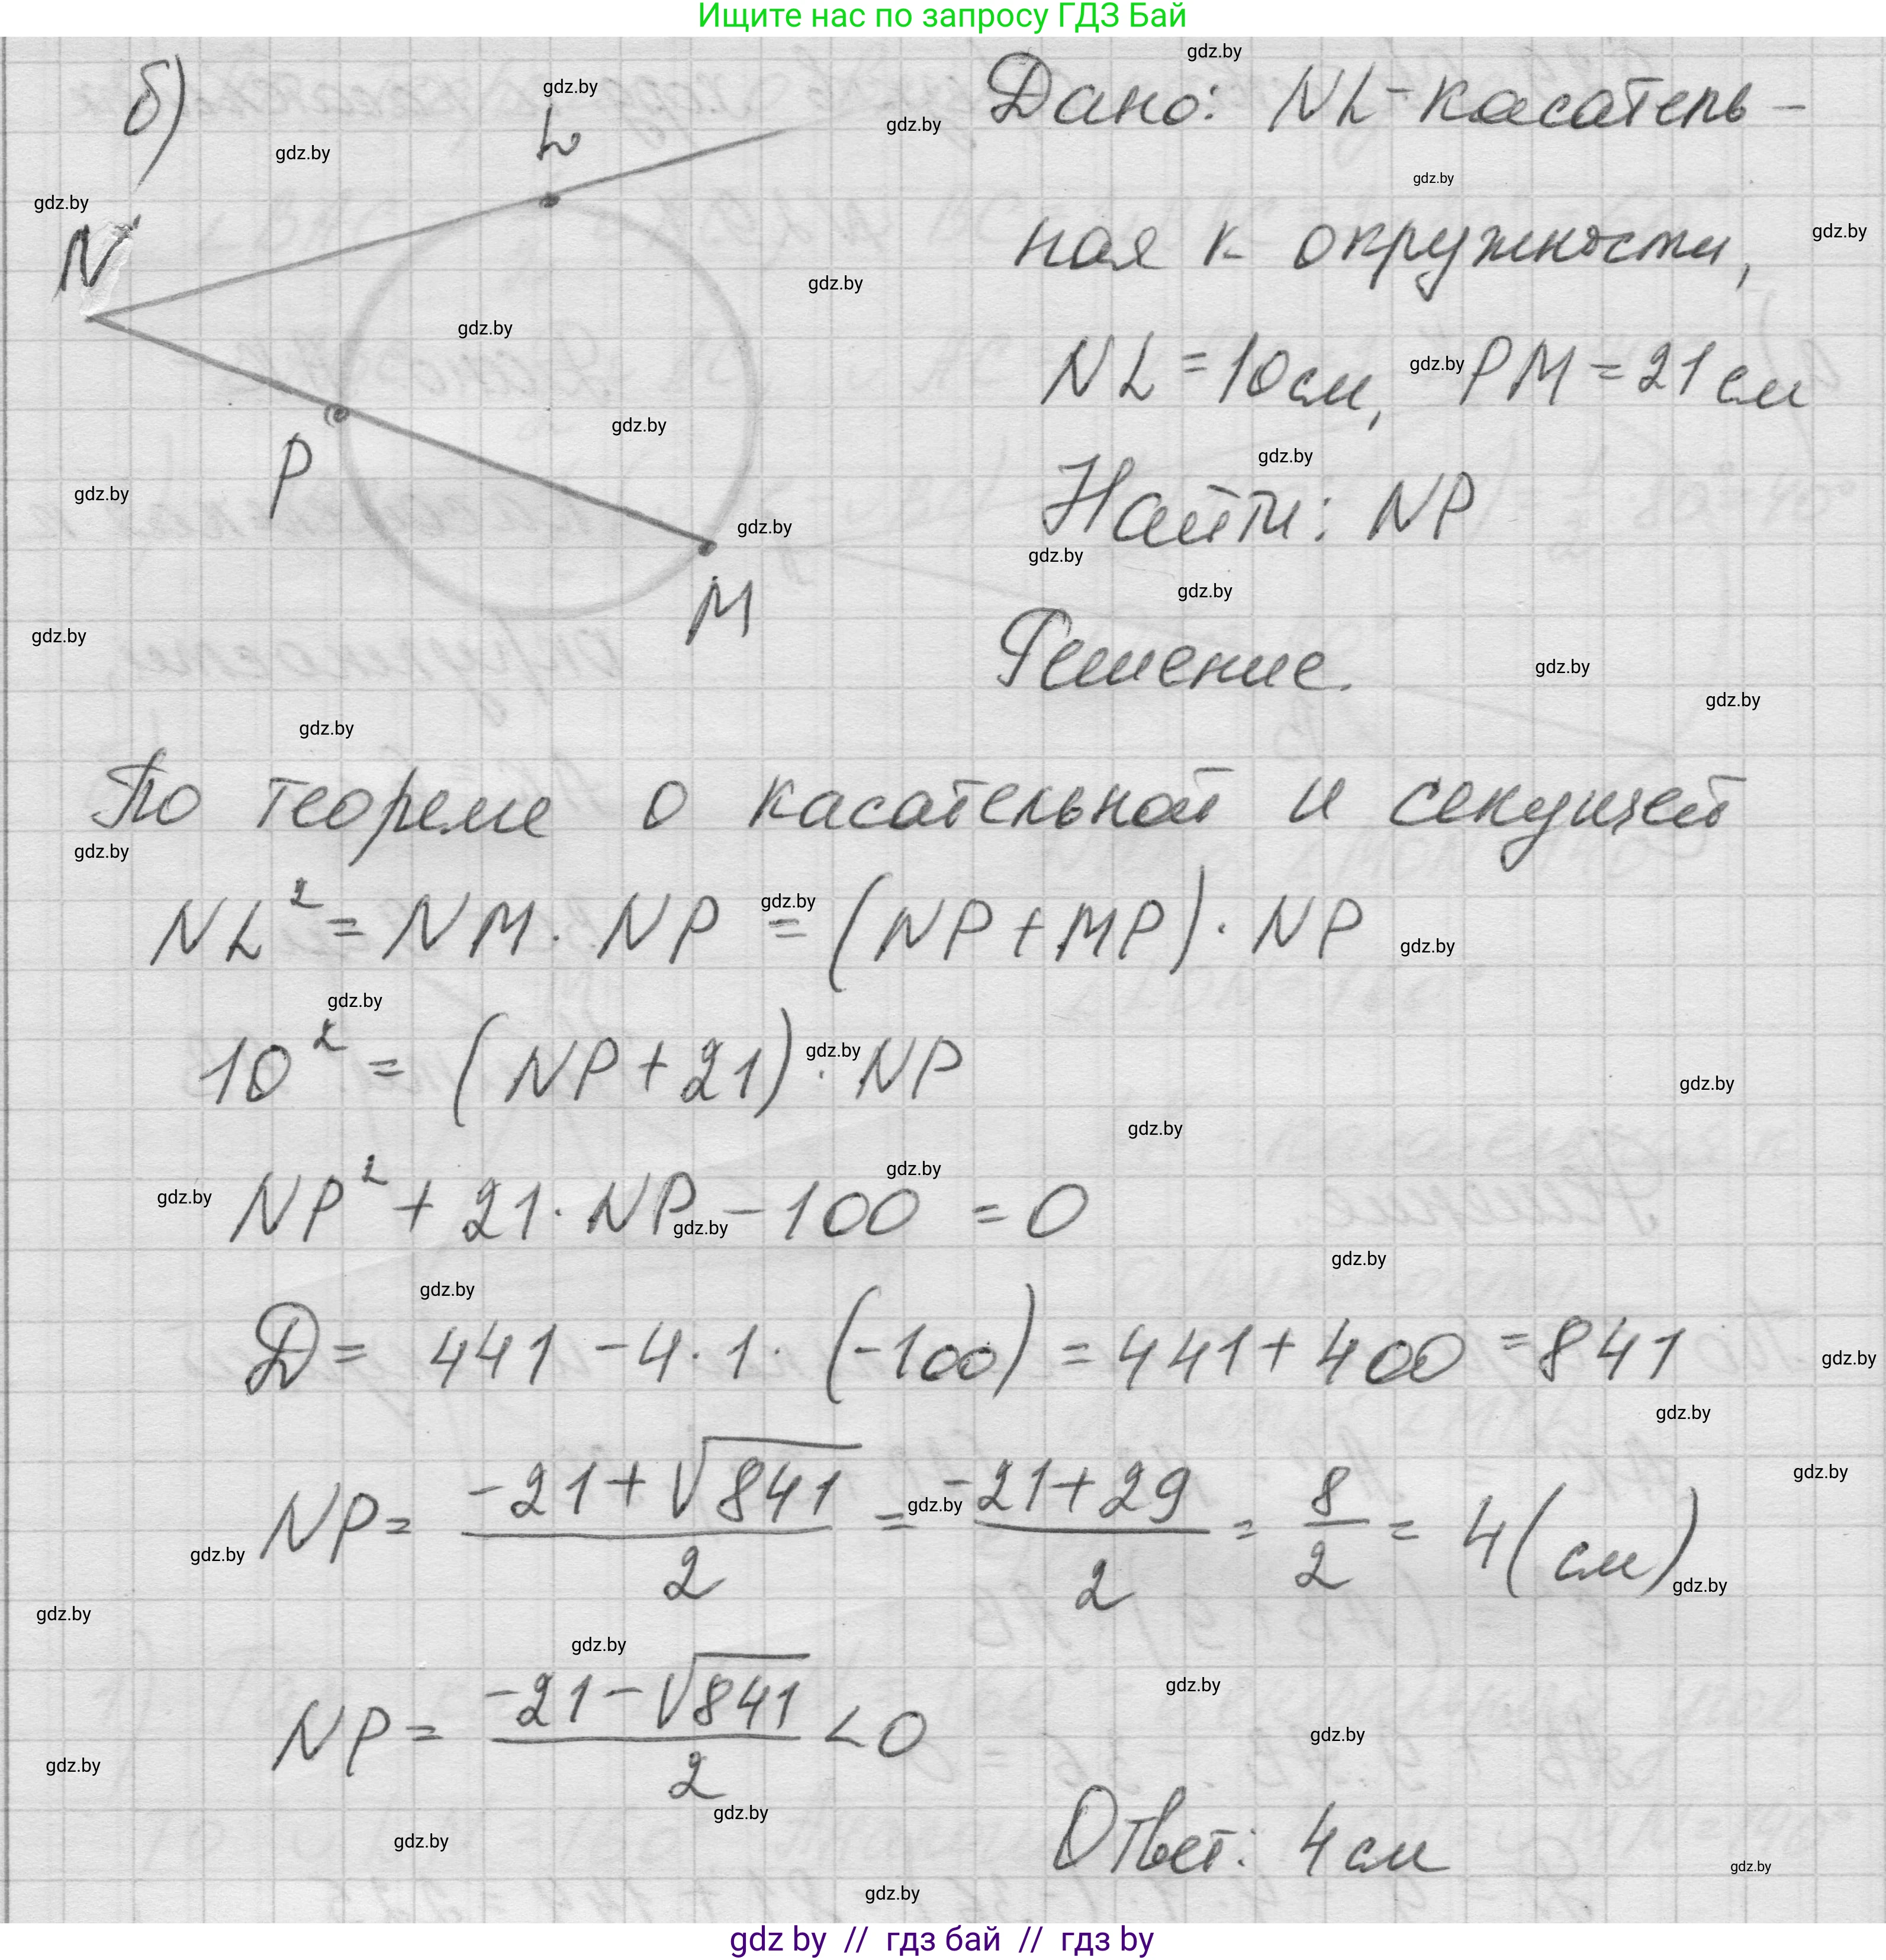 Ищите нас по запросу ГДЗ Бай
б)
L
N
P
M
Дано: NL - касатель-
ная к окружности,
NL = 10 см, PM = 21 см
Найти: NP
Решение.
По теореме о касательной и секущей
NL² = NM · NP = (NP + MP) · NP
10² = (NP + 21) · NP
NP² + 21 · NP - 100 = 0
D = 441 - 4 · 1 · (-100) = 441 + 400 = 841
NP = (-21 + √841)/2 = (-21 + 29)/2 = 8/2 = 4 (см)
NP = (-21 - √841)/2 < 0
Ответ: 4 см
gdz by // гдз бай // гдз by